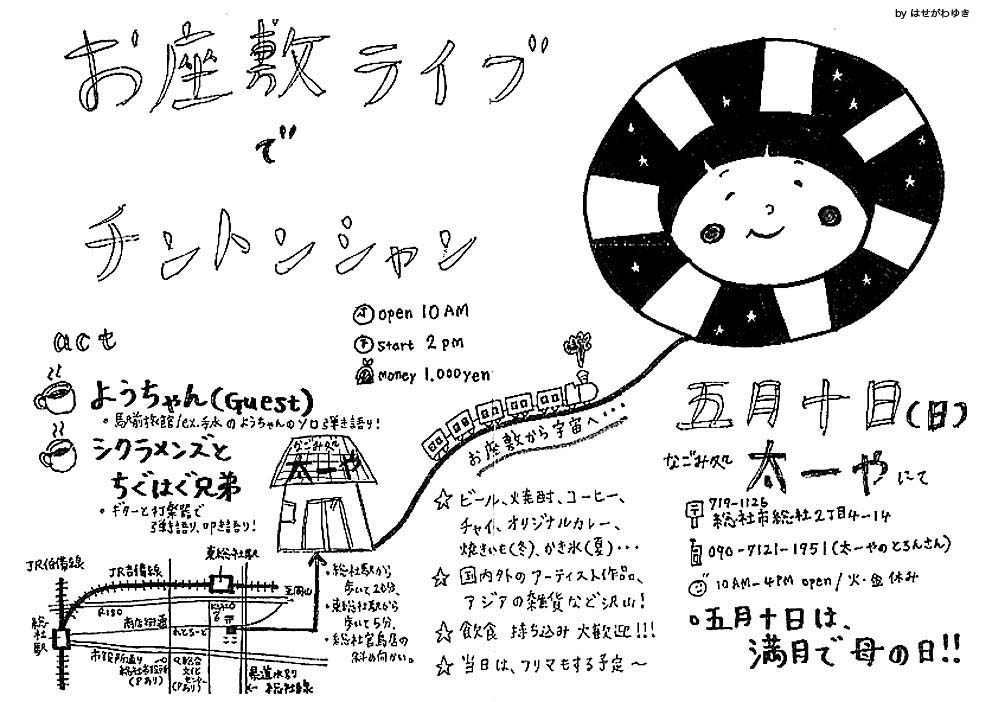 by はせがわゆき
お座敷ライブ
で
チントンシャン
open 10 AM
start 2 pm
money 1.000yen
act
ようちゃん(Guest)
シクラメンズと
ちぐはぐ兄弟
・ギターと打楽器で
弾き語り、叩き語り!
なごみ処
太一や
お座敷から宇宙へ・・・・
五月十日(日)
なごみ処 太一やにて
〒719-1126
総社市総社2丁目4-14
090-7121-1951(太一やのとろんさん)
10AM-4PM open / 火・金休み
・五月十日は、
満月で母の日!!
☆ ビール、焼酎、コーヒー、
チャイ、オリジナルカレー、
焼きいも(冬)、かき氷(夏)・・・
☆ 国内外のアーティスト作品、
アジアの雑貨など沢山!
☆ 飲食 持ち込み 大歓迎!!!
☆ 当日は、フリマもする予定〜
JR伯備線
JR吉備線
東総社駅
至岡山
R180
商店街通
総社駅
市役所通り
総社市役所
(Pあり)
総合
文化
センター
(Pあり)
県道水別
← 総社線
・総社駅から
歩いて20分、
・東総社駅から
歩いて5分、
・総社宮鳥居の
斜め向かい。